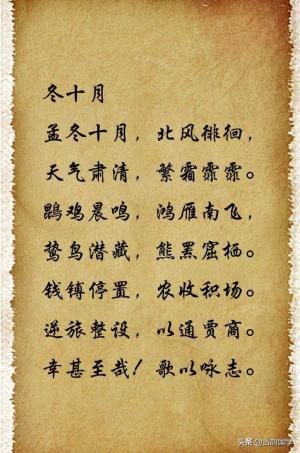 冬十月
孟冬十月，北风徘徊，
天气肃清，繁霜霏霏。
鵾鸡晨鸣，鸿雁南飞，
鸷鸟潜藏，熊罴窟栖。
钱镈停置，农收积场。
逆旅整设，以通贾商。
幸甚至哉！歌以咏志。
头条 @古韵国学